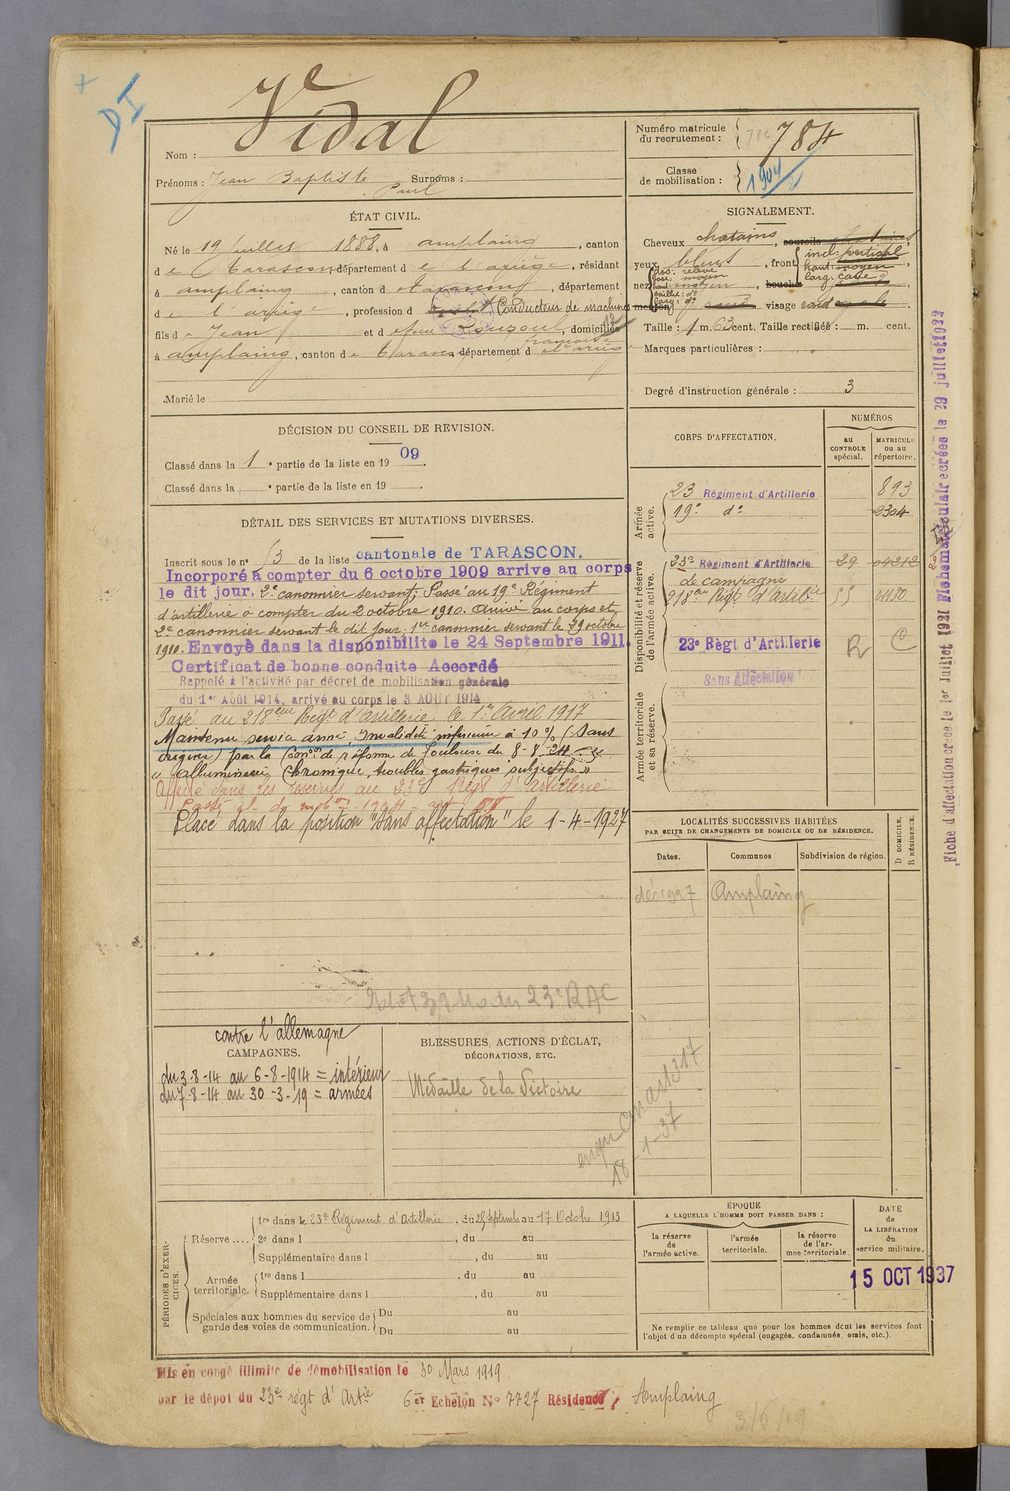 DI
Vidal
Nom :
Prénoms : Jean Baptiste Surnoms :
Paul
Numéro matricule
du recrutement : 784
Classe
de mobilisation : 1904
ÉTAT CIVIL.
Né le 19 juillet 1888, à amplaing, canton
de Tarascon, département de l'ariège, résidant
à amplaing, canton de tarascon, département
de l'ariège, profession d Conducteur de machines
fils de Jean et de feue Rouzoul, domiciliés
française
à amplaing, canton de Tarascon, département d
Marié le
SIGNALEMENT.
Cheveux chatains, sourcils
yeux bleus, front incl: vertical
haut: moyen
larg:
nez dos: relevé
base: moyen
haut: moyen, bouche
saillie: do
larg: do
menton rond visage rond
Taille : 1 m. 63 cent. Taille rectifiée : m. cent.
Marques particulières :
Degré d'instruction générale : 3
DÉCISION DU CONSEIL DE REVISION.
Classé dans la 1e partie de la liste en 1909.
Classé dans la e partie de la liste en 19
DÉTAIL DES SERVICES ET MUTATIONS DIVERSES.
Inscrit sous le no 53 de la liste cantonale de TARASCON.
Incorporé à compter du 6 octobre 1909 arrive au corps
le dit jour, 2e canonnier servant; Passé au 19e Régiment
d'artillerie à compter du 2 octobre 1910. Arrivé au corps et
2e canonnier servant le dit jour; 1er canonnier servant le 29 octobre
1910. Envoyé dans la disponibilite le 24 Septembre 1911.
Certificat de bonne conduite Accordé
Rappelé à l'activité par décret de mobilisation générale
du 1er Août 1914, arrivé au corps le 3 AOUT 1914
Passé au 218ème Régt d'artillerie, le 1er Avril 1917
Maintenu service armé, Invalidité inférieure à 10 % (sans
origine) par la Comon de réforme de Toulouse du 8-8-24
chronique, troubles gastriques subjectifs"
Affecté dans les réserves au 33e Régt d'artillerie
Placé dans la position "Sans affectation" le 1-4-1927
CORPS D'AFFECTATION.
NUMÉROS
AU CONTROLE spécial.
MATRICULE ou au répertoire.
Armée active.
23 Régiment d'Artillerie 893
19e do 2304
Disponibilité et réserve de l'armée active.
23e Régiment d'Artillerie 29 04312
de campagne
218ème Régt d'Artillie 55
23e Règt d'Artillerie R C
Sans Affectation
Armée territoriale et sa réserve.
LOCALITÉS SUCCESSIVES HABITÉES
PAR SUITE DE CHANGEMENTS DE DOMICILE OU DE RÉSIDENCE.
Dates. Communes Subdivision de région. D DOMICILE. R RÉSIDENCE.
déc 1927 Amplaing
23e RAC
contre l'allemagne
CAMPAGNES.
du 3-8-14 au 6-8-1914 = intérieur
du 7-8-14 au 30-3-19 = armées
BLESSURES, ACTIONS D'ÉCLAT,
DÉCORATIONS, ETC.
Médaille de la Victoire
18-1-37
PÉRIODES D'EXERCICES.
Réserve .... 1re dans le 23e Régiment d'Artillerie, du 25 Septembre au 17 Octobre 1913
2e dans l , du au
Supplémentaire dans l , du au
Armée territoriale. 1re dans l , du au
Supplémentaire dans l , du au
Spéciales aux hommes du service de garde des voies de communication. Du au
Du au
ÉPOQUE
A LAQUELLE L'HOMME DOIT PASSER DANS :
la réserve de l'armée active.
l'armée territoriale.
la réserve de l'armée territoriale.
DATE
de
LA LIBÉRATION
du
service militaire.
15 OCT 1937
Ne remplir ce tableau que pour les hommes dont les services font
l'objet d'un décompte spécial (engagés, condamnés, omis, etc.).
Mis en congé illimité de démobilisation le 30 Mars 1919
par le dépot du 23e regt d'Artie 6er Echelon No 7727 Résidence Amplaing
3/6/19
Fiche d'affectation créée le 1er Juillet 1921 Fiche matriculaire créée le 29 juillet 1922